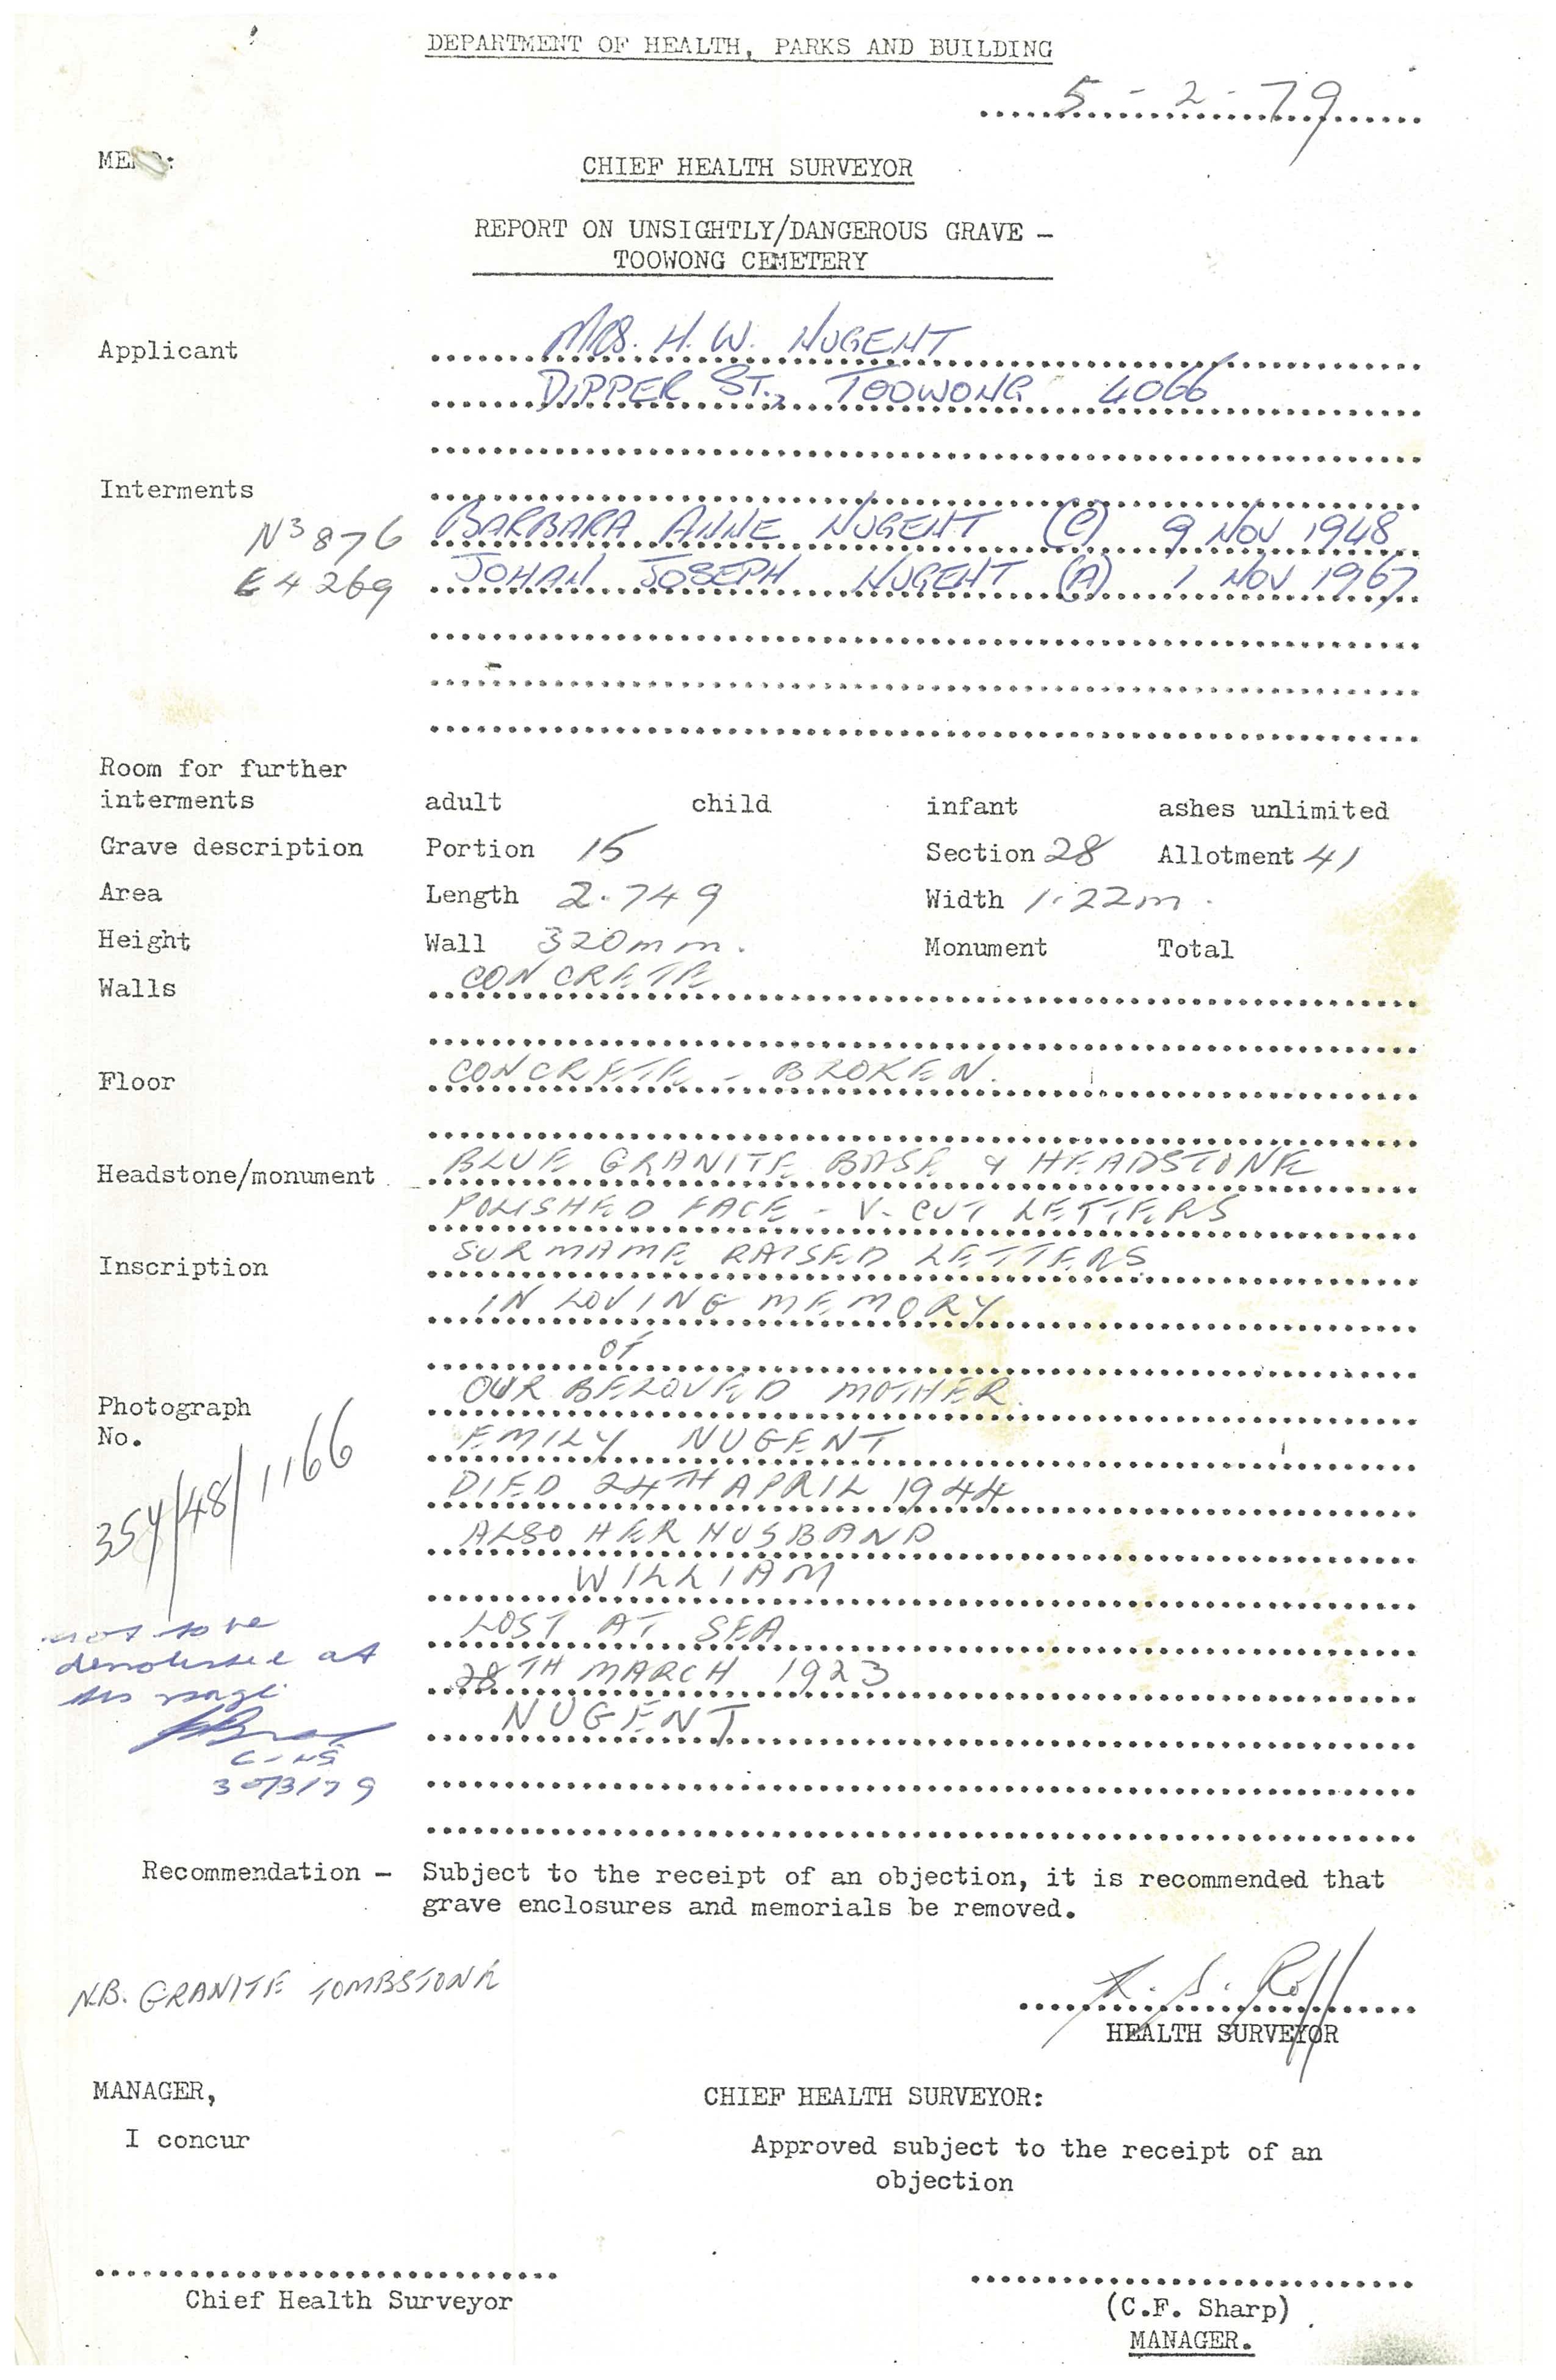 DEPARTMENT OF HEALTH, PARKS AND BUILDING
5 - 2 - 79
MEMO:
CHIEF HEALTH SURVEYOR
REPORT ON UNSIGHTLY/DANGEROUS GRAVE -
TOOWONG CEMETERY
Applicant MRS. H. W. NUGENT
DIPPER ST., TOOWONG 4066
Interments
N3876 BARBARA ANNE NUGENT (C) 9 NOV 1948
E4269 JOHAN JOSEPH NUGENT (A) 1 NOV 1967
Room for further
interments adult child infant ashes unlimited
Grave description Portion 15 Section 28 Allotment 41
Area Length 2.749 Width 1.22m.
Height Wall 320mm. Monument Total
Walls CONCRETE
Floor CONCRETE - BROKEN.
Headstone/monument BLUE GRANITE BASE & HEADSTONE
POLISHED FACE - V-CUT LETTERS
Inscription SURNAME RAISED LETTERS
IN LOVING MEMORY
OF
OUR BELOVED MOTHER
Photograph
No. EMILY NUGENT
354/48/1166
DIED 24TH APRIL 1944
ALSO HER HUSBAND
WILLIAM
LOST AT SEA
28TH MARCH 1923
NUGENT
not to be
at
30/3/79
Recommendation - Subject to the receipt of an objection, it is recommended that
grave enclosures and memorials be removed.
N.B. GRANITE TOMBSTONE
HEALTH SURVEYOR
MANAGER, CHIEF HEALTH SURVEYOR:
I concur Approved subject to the receipt of an
objection
Chief Health Surveyor
(C.F. Sharp)
MANAGER.